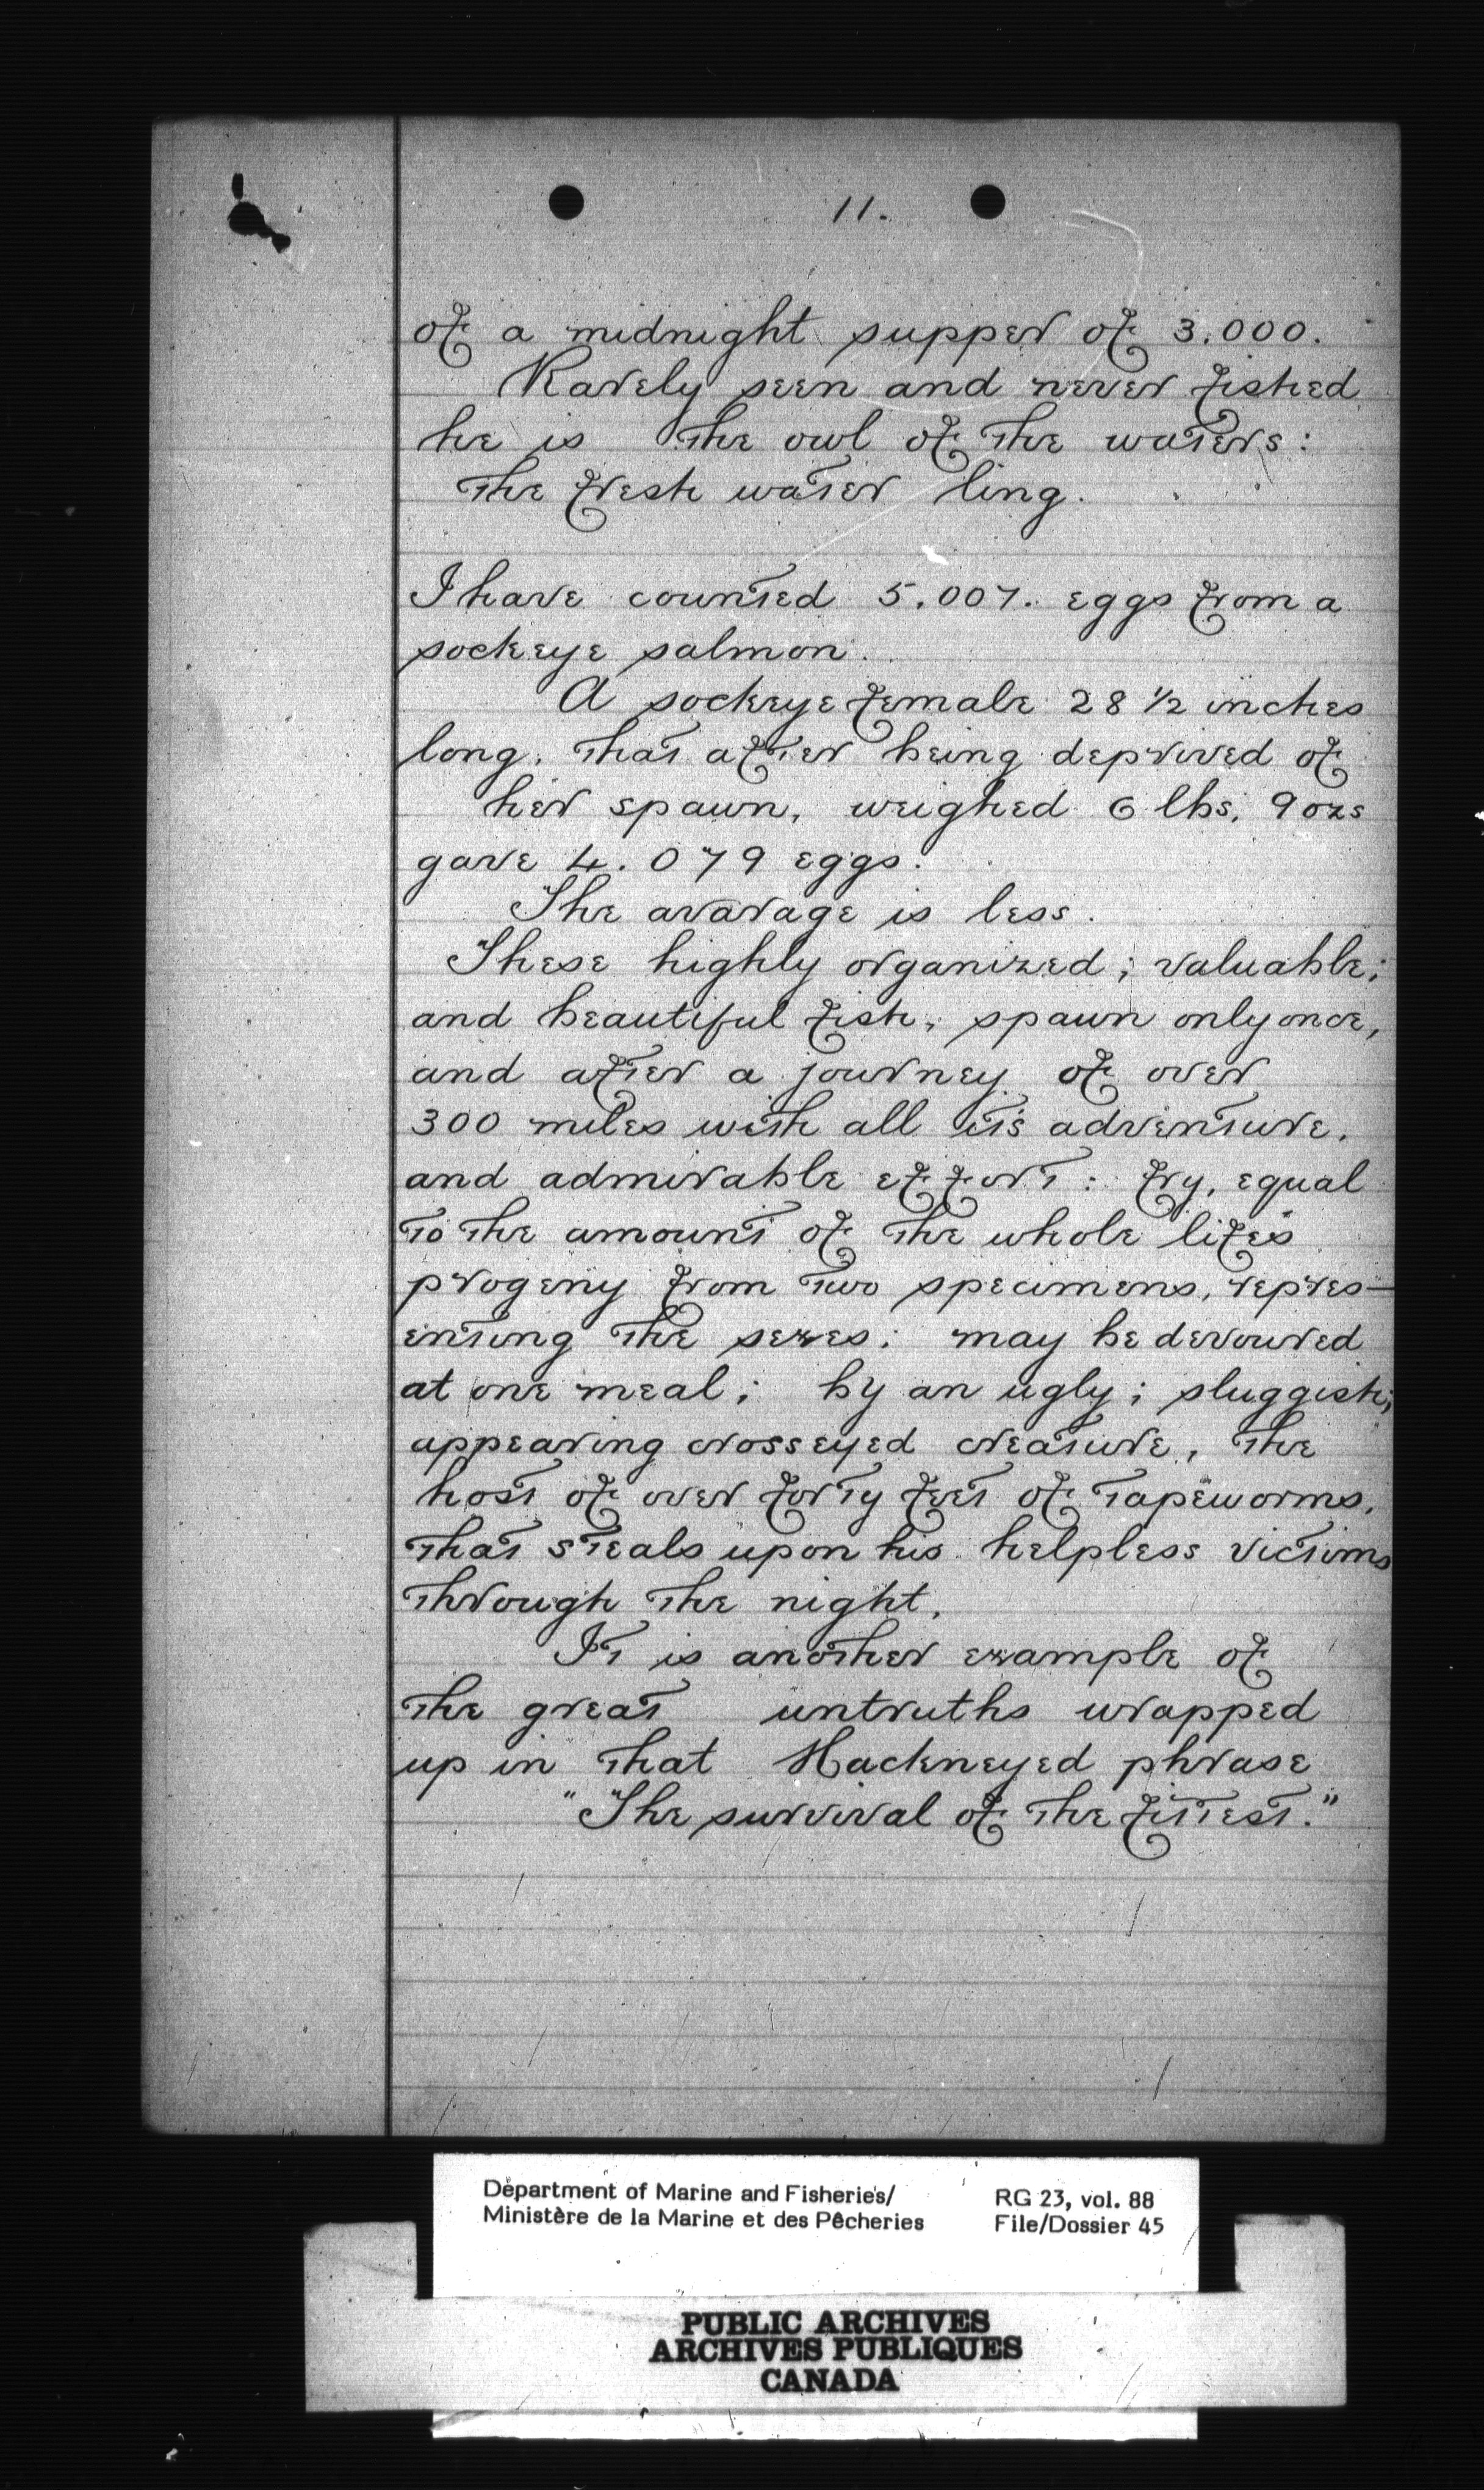 11.
of a midnight supper of 3.000.
Rarely seen and never fished
he is the owl of the waters:
The fresh water ling.
I have counted 5.007. eggs from a
sockeye salmon.
A sockeye female 28 1/2 inches
long. that after being deprived of
her spawn, weighed 6 lbs, 9 ozs
gave 4.079 eggs.
The avarage is less.
These highly organized; valuable;
and beautiful fish, spawn only once,
and after a journey of over
300 miles with all its adventure.
and admirable effort: fry, equal
to the amount of the whole life's
progeny from two specimens, repres-
enting the sexes: may be devoured
at one meal; by an ugly; sluggish;
appearing crosseyed creature, the
host of over forty feet of tapeworms,
that steals upon his helpless victims
through the night.
It is another example of
the great untruths wrapped
up in that Hackneyed phrase
"The survival of the fittest."
Department of Marine and Fisheries/
Ministère de la Marine et des Pêcheries
RG 23, vol. 88
File/Dossier 45
PUBLIC ARCHIVES
ARCHIVES PUBLIQUES
CANADA